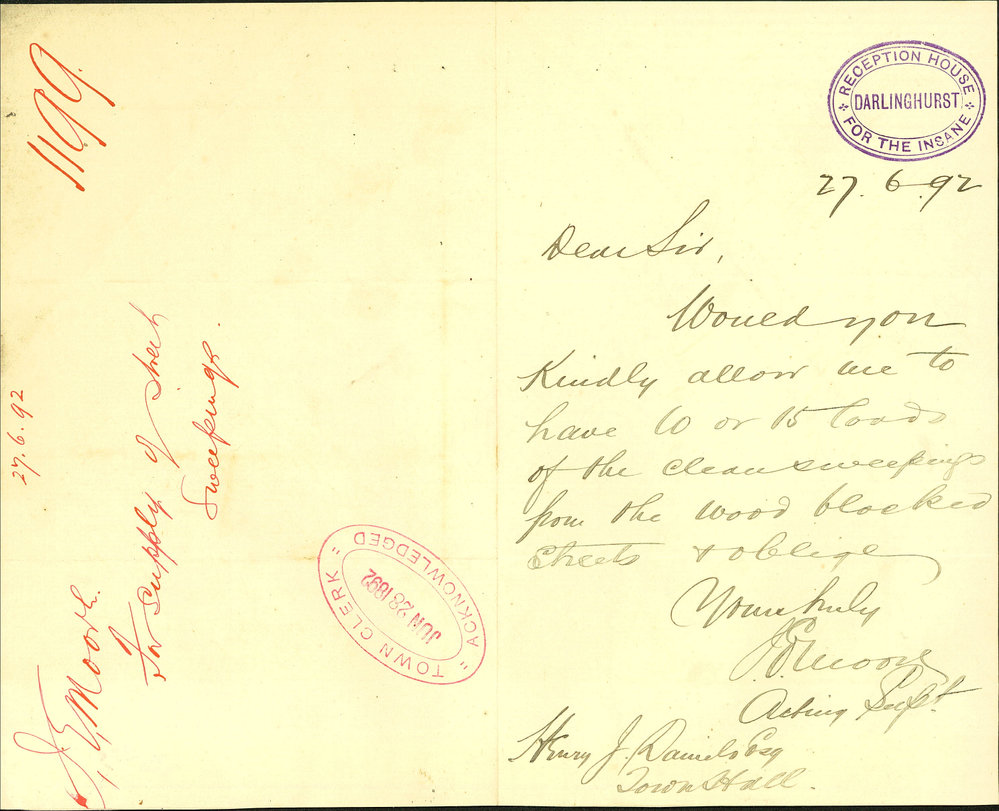 1199
27.6.92
J. E. Moore.
For supply of street
sweepings
"TOWN CLERK"
JUN 28 1892
"ACKNOWLEDGED"
RECEPTION HOUSE
DARLINGHURST
FOR THE INSANE
27.6.92
Dear Sir,
Would you
Kindly allow me to
have 10 or 15 loads
of the clean sweepings
from the wood blocked
streets & oblige
Yours truly
Moore
Acting Supt.
Henry J. Daniels Esq
Town Hall.